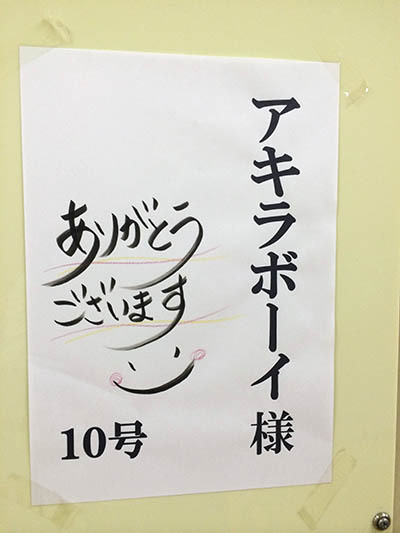 アキラボーイ様
ありがとう
ございます
10号